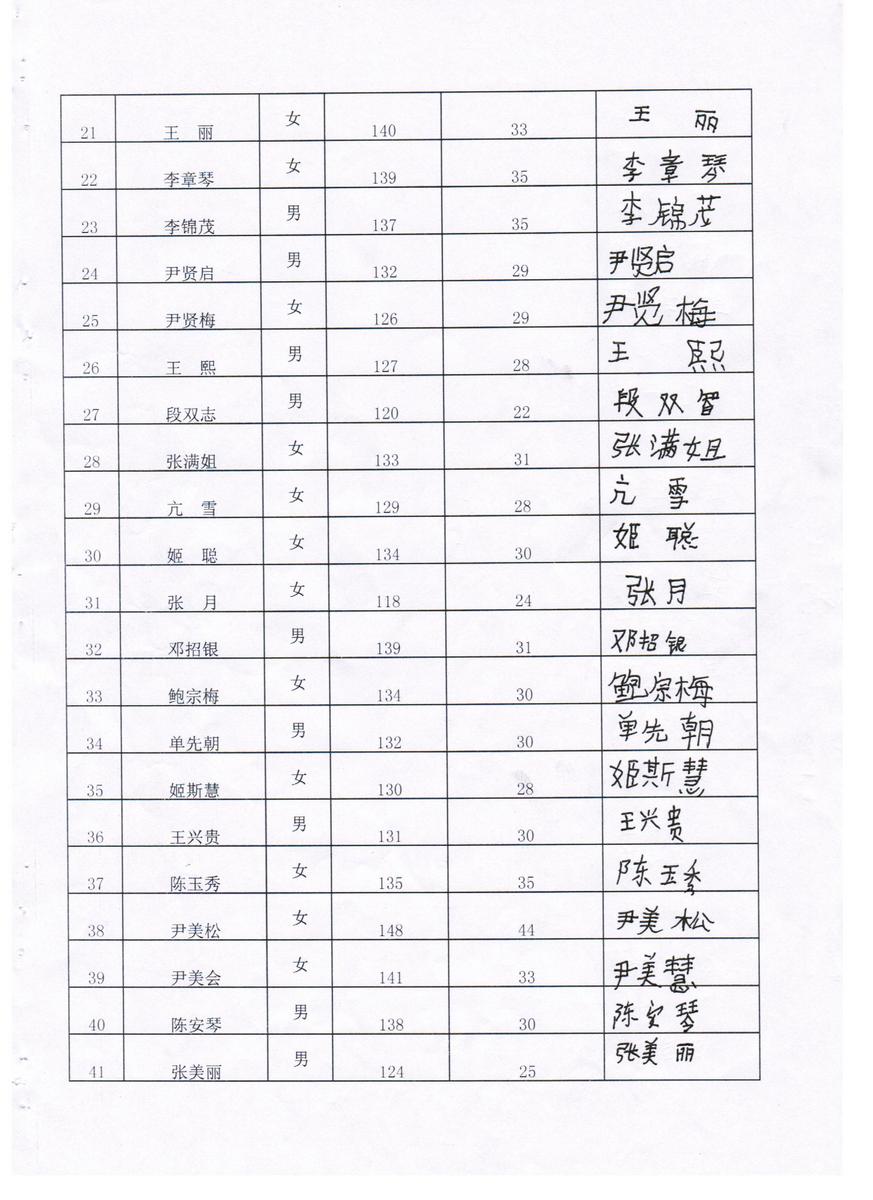 21 王 丽 女 140 33 王 丽
22 李章琴 女 139 35 李章琴
23 李锦茂 男 137 35 李锦茂
24 尹贤启 男 132 29 尹贤启
25 尹贤梅 女 126 29 尹贤梅
26 王 熙 男 127 28 王 熙
27 段双志 男 120 22 段双智
28 张满姐 女 133 31 张满姐
29 亢 雪 女 129 28 亢 雪
30 姬 聪 女 134 30 姬 聪
31 张 月 女 118 24 张月
32 邓招银 男 139 31 邓招银
33 鲍宗梅 女 134 30 鲍宗梅
34 单先朝 男 132 30 单先朝
35 姬斯慧 女 130 28 姬斯慧
36 王兴贵 男 131 30 王兴贵
37 陈玉秀 女 135 35 陈玉秀
38 尹美松 女 148 44 尹美松
39 尹美会 女 141 33 尹美慧
40 陈安琴 男 138 30 陈安琴
41 张美丽 男 124 25 张美丽